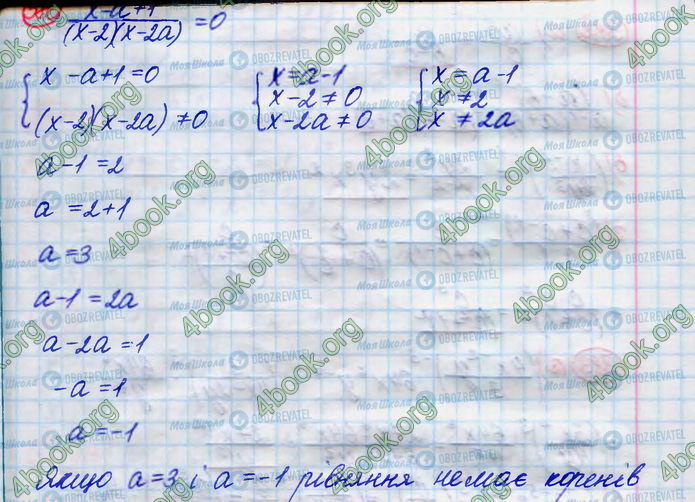 x-a+1
(x-2)(x-2a) =0
{ x -a+1=0 { x=a-1 { x=a-1
x-2≠0 x≠2
(x-2)(x-2a) ≠0 x-2a≠0 x≠2a
a-1=2
a =2+1
a=3
a-1=2a
a-2a=1
-a=1
a=-1
Якщо a=3 і a=-1 рівняння немає коренів
4book.org
Моя Школа
OBOZREVATEL